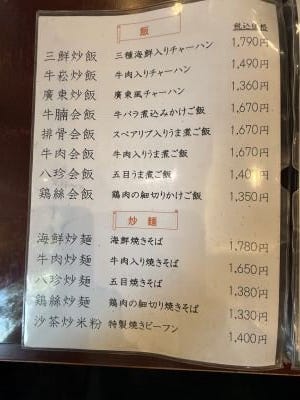 飯
税込価格
三鮮炒飯 三種海鮮入りチャーハン 1,790円
牛崧炒飯 牛肉入りチャーハン 1,490円
廣東炒飯 廣東風チャーハン 1,360円
牛腩会飯 牛バラ煮込みかけご飯 1,670円
排骨会飯 スペアリブ入りうま煮ご飯 1,670円
牛肉会飯 牛肉入りうま煮ご飯 1,670円
八珍会飯 五目うま煮ご飯 1,40 円
鶏絲会飯 鶏肉の細切りかけご飯 1,350円
炒麺
海鮮炒麺 海鮮焼きそば 1,780円
牛肉炒麺 牛肉入り焼きそば 1,650円
八珍炒麺 五目焼きそば 1,380円
鶏絲炒麺 鶏肉の細切り焼きそば 1,330円
沙茶炒米粉 特製焼きビーフン 1,400円